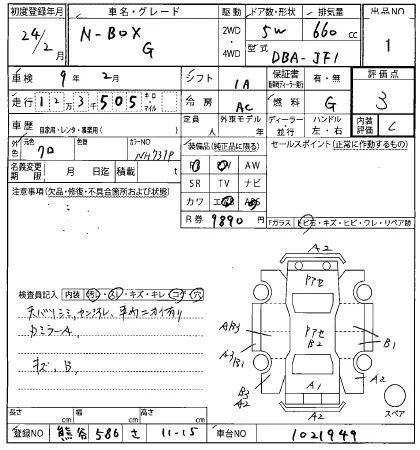 初度登録年月 車名・グレード 駆動 ドア数・形状 排気量 出品NO
24/2月 N-BOX G 2WD・4WD 5W 660cc 1
型式 DBA-JF1
車検 9年 2月 シフト IA 保証書 有・無 評価点
走行 12万3千505 キロ・マイル 冷房 AC 燃料 G 3
車歴 自家用・レンタ・事業用( ) 定員 人 外車モデル 年 ディーラー・並行 ハンドル 左・右 内装評価 C
外色 元色 クロ 色替 カラーNO NH731P 装備品(純正品に限る) セールスポイント(正常に作動するもの)
名義変更期限 月 日 積載 t AW
注意事項(欠品・修復・不具合箇所および状態) SR TV ナビ
カワ エアB ABS
R券 9890円
Fガラス トビ石・キズ・ヒビ・ワレ・リペア跡
検査員記入 内装 汚れ・スレ・キズ・キレ・コゲ・穴
天バリシミ、センヌレ、車内ニオイ有り
カミラーA、
キズ、B、
A2
Pアセ
Pアセ
B2
AB3
A3B1
B1
B3
A2
A2
A1
A2
スペア
長さ cm 幅 cm 高さ cm
登録NO 熊谷 586 さ 11-15 車台NO 1021949